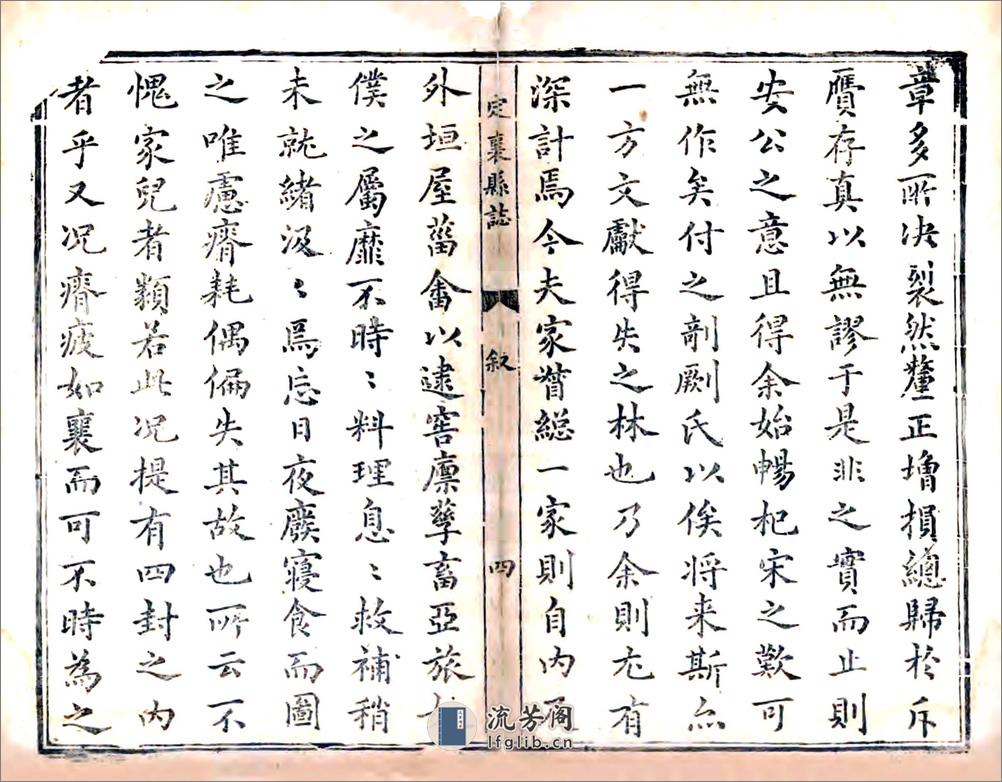 章多所决裂然釐正增損總歸於斥
贋存真以無謬于是非之實而止則
安公之意且得余始暢杞宋之歎可
無作矣付之剞劂氏以俟将来斯亦
一方文獻得失之林也乃余則尤有
深計焉今夫家督総一家則自内而
定襄縣誌
叙
四
外垣屋菑畬以逮窖廪孳畜亞旅
僕之屬靡不時〻料理息〻救補稍
未就緒汲〻焉忘日夜廢寝食而圖
之唯慮瘠耗偶偏失其故也所云不
愧家兒者類若此况提有四封之内
者乎又况瘠疲如襄而可不時為之
流芳阁
lfglib.cn